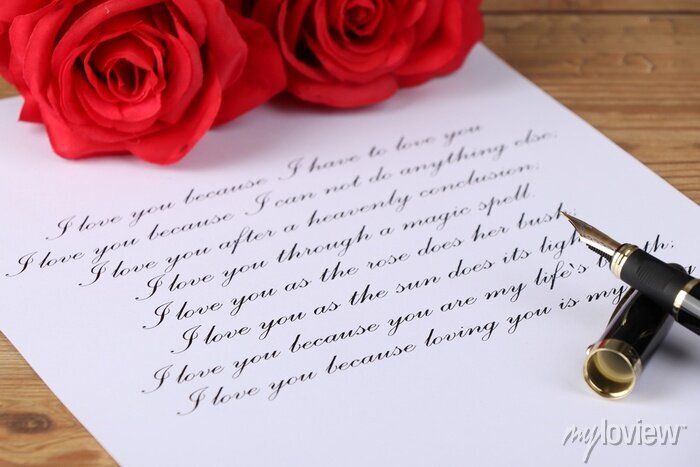 I love you because I have to love you
I love you because I can not do anything else;
I love you after a heavenly conclusion;
I love you through a magic spell.
I love you as the rose does her bush;
I love you as the sun does its
I love you because you are my life's
I love you because loving you is my
myloview